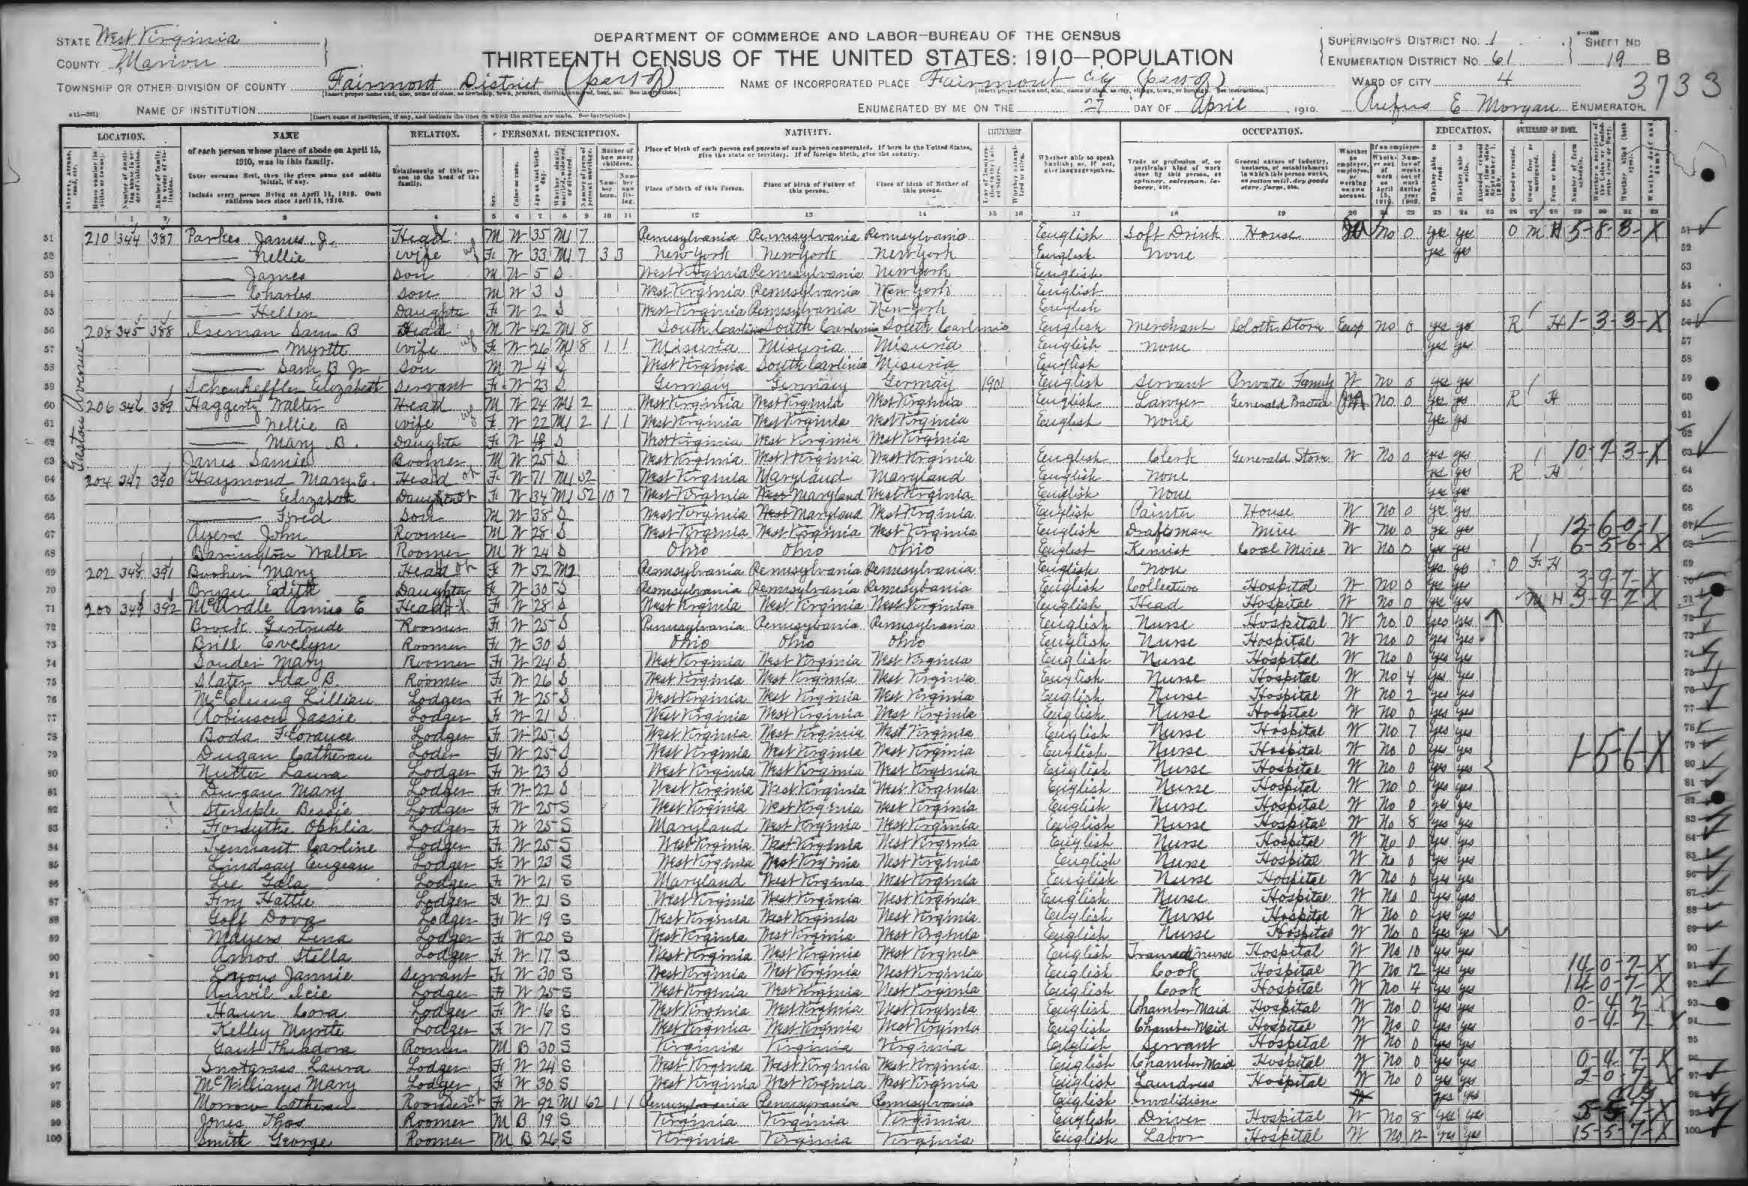 DEPARTMENT OF COMMERCE AND LABOR—BUREAU OF THE CENSUS
THIRTEENTH CENSUS OF THE UNITED STATES: 1910—POPULATION
STATE West Virginia
COUNTY Marion
TOWNSHIP OR OTHER DIVISION OF COUNTY Fairmont District (part of)
NAME OF INSTITUTION
NAME OF INCORPORATED PLACE Fairmont City (part of)
ENUMERATED BY ME ON THE 27 DAY OF April, 1910.
SUPERVISOR'S DISTRICT NO. 1
ENUMERATION DISTRICT NO. 61
SHEET NO 19 B
WARD OF CITY 4
3733
Rufus E Morgan ENUMERATOR.
LOCATION. NAME RELATION. PERSONAL DESCRIPTION. NATIVITY. CITIZENSHIP OCCUPATION. EDUCATION. OWNERSHIP OF HOME.
of each person whose place of abode on April 15, 1910, was in this family.
Enter surname first, then the given name and middle initial, if any.
Include every person living on April 15, 1910. Omit children born since April 15, 1910.
Relationship of this person to the head of the family.
Place of birth of this Person. Place of birth of Father of this person. Place of birth of Mother of this person.
Gaston Avenue
51 210 344 387 Parkes James J. Head M W 35 M1 7 Pennsylvania Pennsylvania Pennsylvania English Soft Drink House No 0 yes yes O M H 5-8-3-X
52 Nellie wife F W 33 M1 7 3 3 New York New York New York English none yes yes
53 James Son M W 5 S West Virginia Pennsylvania New York English
54 Charles Son M W 3 S West Virginia Pennsylvania New York English
55 Hellen Daughte F W 2 S West Virginia Pennsylvania New York English
56 208 345 388 Iseman Sam B Head M W 42 M1 8 South Carlina South Carlinia South Carlinia English Merchant Cloths Store Emp No 0 yes yes R H 1-3-3-X
57 Myrtle wife F W 26 M1 8 1 1 Misuria Misuria Misuria English none yes yes
58 Sam B Jr Son M W 4 S West Virginia South Carlinia Misuria English
59 Elizabeth Servant F W 23 S Germany Germany Germany 1901 English Servant Private Family W No 0 yes yes
60 206 346 389 Haggerty Walter Head M W 24 M1 2 West Virginia West Virginia West Virginia English Lawyer Generald Practice No 0 yes yes R H
61 Nellie B wife F W 22 M1 2 1 1 West Virginia West Virginia West Virginia English none yes yes
62 Mary B. Daughte F W S West Virginia West Virginia West Virginia
63 Janes Samie Roomer M W 25 S West Virginia West Virginia West Virginia English Clerk Generald Store W No 0 yes yes 10-7-3-X
64 204 347 390 Haymond Mary E. Head F W 71 M1 52 West Virginia Maryland Maryland English none yes yes R H
65 Elizabeth F W 34 M1 52 10 7 West Virginia Maryland West Virginia English none yes yes
66 Fred Son M W 38 S West Virginia Maryland West Virginia English Painter House W No 0 yes yes
67 Ayers John Roomer M W 28 S West Virginia West Virginia West Virginia English Draftsman Mine W No 0 yes yes 12-6-0-1
68 Barington Walter Roomer M W 24 S Ohio Ohio Ohio English Kemist Coal Mines W No 0 yes yes 6-5-6-X
69 202 348 391 Mary Head F W 52 M2 Pennsylvania Pennsylvania Pennsylvania English non yes yes O F H
70 Edith Daughter F W 30 S Pennsylvania Pennsylvania Pennsylvania English Collection Hospital W No 0 yes yes 3-9-7-X
71 200 349 392 McArdle Annie E Head F W 28 S West Virginia West Virginia West Virginia English Head Hospital W No 0 yes yes M H 3-9-7-X
72 Brock Gertrude Roomer F W 25 S Pennsylvania Pennsylvania Pennsylvania English Nurse Hospital W No 0 yes yes
73 Brill Evelyn Roomer F W 30 S Ohio Ohio Ohio English Nurse Hospital W No 0 yes yes
74 Souder Mary Roomer F W 24 S West Virginia West Virginia West Virginia English Nurse Hospital W No 0 yes yes
75 Slater Ida B. Roomer F W 26 S West Virginia West Virginia West Virginia English Nurse Hospital W No 4 yes yes
76 McClung Lillian Lodger F W 25 S West Virginia West Virginia West Virginia English Nurse Hospital W No 2 yes yes
77 Robinson Jassie Lodger F W 21 S West Virginia West Virginia West Virginia English Nurse Hospital W No 0 yes yes
78 Boda Florance Lodger F W 25 S West Virginia West Virginia West Virginia English Nurse Hospital W No 7 yes yes
79 Dugan Catherau Loder F W 25 S West Virginia West Virginia West Virginia English Nurse Hospital W No 0 yes yes 1-5-6-X
80 Nutter Laura Lodger F W 23 S West Virginia West Virginia West Virginia English Nurse Hospital W No 0 yes yes
81 Dugan Mary Lodger F W 22 S West Virginia West Virginia West Virginia English Nurse Hospital W No 0 yes yes
82 Stemple Bessie Lodger F W 25 S West Virginia West Virginia West Virginia English Nurse Hospital W No 0 yes yes
83 Forsythe Ophlia Lodger F W 25 S Maryland West Virginia West Virginia English Nurse Hospital W No 8 yes yes
84 Tennant Carline Lodger F W 25 S West Virginia West Virginia West Virginia English Nurse Hospital W No 0 yes yes
85 Lindsay Lodger F W 23 S West Virginia West Virginia West Virginia English Nurse Hospital W No 0 yes yes
86 Lee Gola Lodger F W 21 S Maryland West Virginia West Virginia English Nurse Hospital W No 0 yes yes
87 Fry Hattie Lodger F W 21 S West Virginia West Virginia West Virginia English Nurse Hospital W No 0 yes yes
88 Goff Dova Lodger F W 19 S West Virginia West Virginia West Virginia English Nurse Hospital W No 0 yes yes
89 Mayers Lena Lodger F W 20 S West Virginia West Virginia West Virginia English Nurse Hospital W No 0 yes yes
90 Amos Stella Lodger F W 17 S West Virginia West Virginia West Virginia English Trained nurse Hospital W No 10 yes yes
91 Jannie Servant F W 30 S West Virginia West Virginia West Virginia English Cook Hospital W No 12 yes yes 14-0-7-X
92 Anvil Icie Lodger F W 25 S West Virginia West Virginia West Virginia English Cook Hospital W No 4 yes yes 14-0-7-X
93 Haun Cora Lodger F W 16 S West Virginia West Virginia West Virginia English Chamber Maid Hospital W No 0 yes yes 0-4-7-X
94 Kelley Myrtle Lodger F W 17 S West Virginia West Virginia West Virginia English Chamber Maid Hospital W No 0 yes yes 0-4-7-X
95 Gant Theadora Roomer M B 30 S Virginia Virginia Virginia English Servant Hospital W No 0 yes yes
96 Snotgrass Laura Lodger F W 24 S West Virginia West Virginia West Virginia English Chamber Maid Hospital W No 0 yes yes 0-4-7-X
97 McWilliams Mary Lodger F W 30 S West Virginia West Virginia West Virginia English Laundress Hospital W No 0 yes yes 2-0-7-X
98 Morrow Catherau Roomer F W 92 M1 62 1 1 Pennsylvania Pennsylvania Pennsylvania English Invalidian yes yes
99 Jones Thos Roomer M B 19 S Virginia Virginia Virginia English Driver Hospital W No 8 yes yes 5-5-7-X
100 Smith George Roomer M B 26 S Virginia Virginia Virginia English Labor Hospital W No 12 yes yes 15-5-7-X